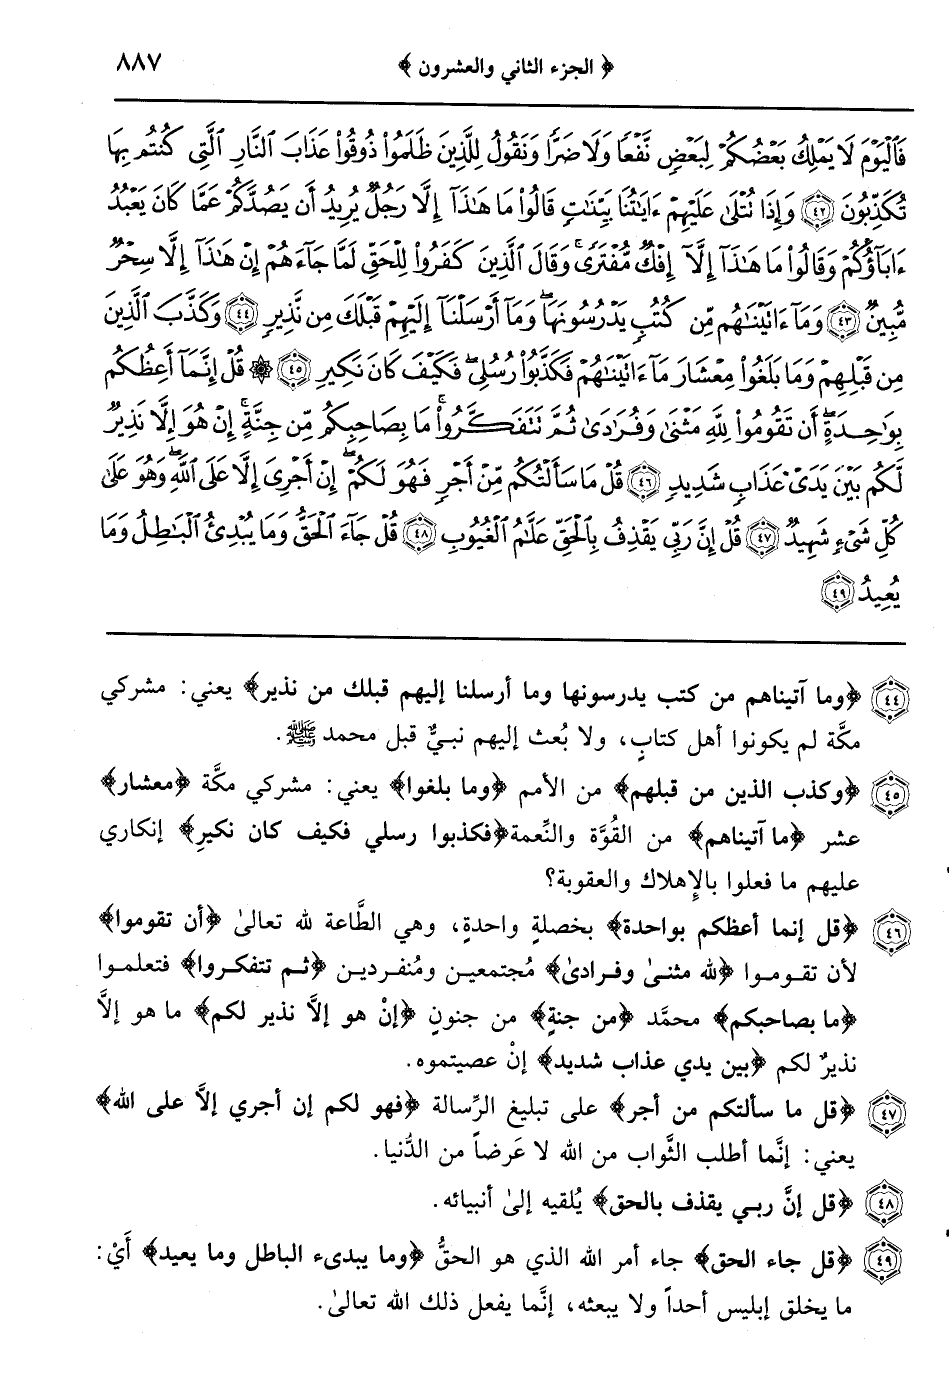 ﴿ الجزء الثاني والعشرون ﴾ ٨٨٧
فَٱلْيَوْمَ لَا يَمْلِكُ بَعْضُكُمْ لِبَعْضٍ نَّفْعًا وَلَا ضَرًّا وَنَقُولُ لِلَّذِينَ ظَلَمُوا۟ ذُوقُوا۟ عَذَابَ ٱلنَّارِ ٱلَّتِى كُنتُم بِهَا
تُكَذِّبُونَ ﴿٤٢﴾ وَإِذَا تُتْلَىٰ عَلَيْهِمْ ءَايَٰتُنَا بَيِّنَٰتٍ قَالُوا۟ مَا هَٰذَآ إِلَّا رَجُلٌ يُرِيدُ أَن يَصُدَّكُمْ عَمَّا كَانَ يَعْبُدُ
ءَابَآؤُكُمْ وَقَالُوا۟ مَا هَٰذَآ إِلَّآ إِفْكٌ مُّفْتَرًى ۚ وَقَالَ ٱلَّذِينَ كَفَرُوا۟ لِلْحَقِّ لَمَّا جَآءَهُمْ إِنْ هَٰذَآ إِلَّا سِحْرٌ
مُّبِينٌ ﴿٤٣﴾ وَمَآ ءَاتَيْنَٰهُم مِّن كُتُبٍ يَدْرُسُونَهَا ۖ وَمَآ أَرْسَلْنَآ إِلَيْهِمْ قَبْلَكَ مِن نَّذِيرٍ ﴿٤٤﴾ وَكَذَّبَ ٱلَّذِينَ
مِن قَبْلِهِمْ وَمَا بَلَغُوا۟ مِعْشَارَ مَآ ءَاتَيْنَٰهُمْ فَكَذَّبُوا۟ رُسُلِى ۖ فَكَيْفَ كَانَ نَكِيرِ ﴿٤٥﴾ ۞ قُلْ إِنَّمَآ أَعِظُكُم
بِوَٰحِدَةٍ ۖ أَن تَقُومُوا۟ لِلَّهِ مَثْنَىٰ وَفُرَٰدَىٰ ثُمَّ تَتَفَكَّرُوا۟ ۚ مَا بِصَاحِبِكُم مِّن جِنَّةٍ ۚ إِنْ هُوَ إِلَّا نَذِيرٌ
لَّكُم بَيْنَ يَدَىْ عَذَابٍ شَدِيدٍ ﴿٤٦﴾ قُلْ مَا سَأَلْتُكُم مِّنْ أَجْرٍ فَهُوَ لَكُمْ ۖ إِنْ أَجْرِىَ إِلَّا عَلَى ٱللَّهِ ۖ وَهُوَ عَلَىٰ
كُلِّ شَىْءٍ شَهِيدٌ ﴿٤٧﴾ قُلْ إِنَّ رَبِّى يَقْذِفُ بِٱلْحَقِّ عَلَّٰمُ ٱلْغُيُوبِ ﴿٤٨﴾ قُلْ جَآءَ ٱلْحَقُّ وَمَا يُبْدِئُ ٱلْبَٰطِلُ وَمَا
يُعِيدُ ﴿٤٩﴾
﴿٤٤﴾ ﴿وما آتيناهم من كتب يدرسونها وما أرسلنا إليهم قبلك من نذير﴾ يعني: مشركي
مكَّة لم يكونوا أهل كتابٍ، ولا بُعث إليهم نبيٌّ قبل محمد ﷺ.
﴿٤٥﴾ ﴿وكذب الذين من قبلهم﴾ من الأمم ﴿وما بلغوا﴾ يعني: مشركي مكَّة ﴿معشار﴾
عشر ﴿ما آتيناهم﴾ من القُوَّة والنِّعمة ﴿فكذبوا رسلي فكيف كان نكيرِ﴾ إنكاري
عليهم ما فعلوا بالإِهلاك والعقوبة؟
﴿٤٦﴾ ﴿قل إنما أعظكم بواحدة﴾ بخصلةٍ واحدةٍ، وهي الطَّاعة لله تعالىٰ ﴿أن تقوموا﴾
لأن تقوموا ﴿لله مثنىٰ وفرادىٰ﴾ مُجتمعين ومُنفردين ﴿ثم تتفكروا﴾ فتعلموا
﴿ما بصاحبكم﴾ محمَّد ﴿من جنةٍ﴾ من جنونٍ ﴿إنْ هو إلاَّ نذير لكم﴾ ما هو إلاَّ
نذيرٌ لكم ﴿بين يدي عذاب شديد﴾ إنْ عصيتموه.
﴿٤٧﴾ ﴿قل ما سألتكم من أجر﴾ على تبليغ الرِّسالة ﴿فهو لكم إن أجري إلاَّ على الله﴾
يعني: إنَّما أطلب الثَّواب من الله لا عَرضاً من الدُّنيا.
﴿٤٨﴾ ﴿قل إنَّ ربي يقذف بالحق﴾ يُلقيه إلىٰ أنبيائه.
﴿٤٩﴾ ﴿قل جاء الحق﴾ جاء أمر الله الذي هو الحقُّ ﴿وما يبدىء الباطل وما يعيد﴾ أَيْ:
ما يخلق إبليس أحداً ولا يبعثه، إنَّما يفعل ذلك الله تعالىٰ.